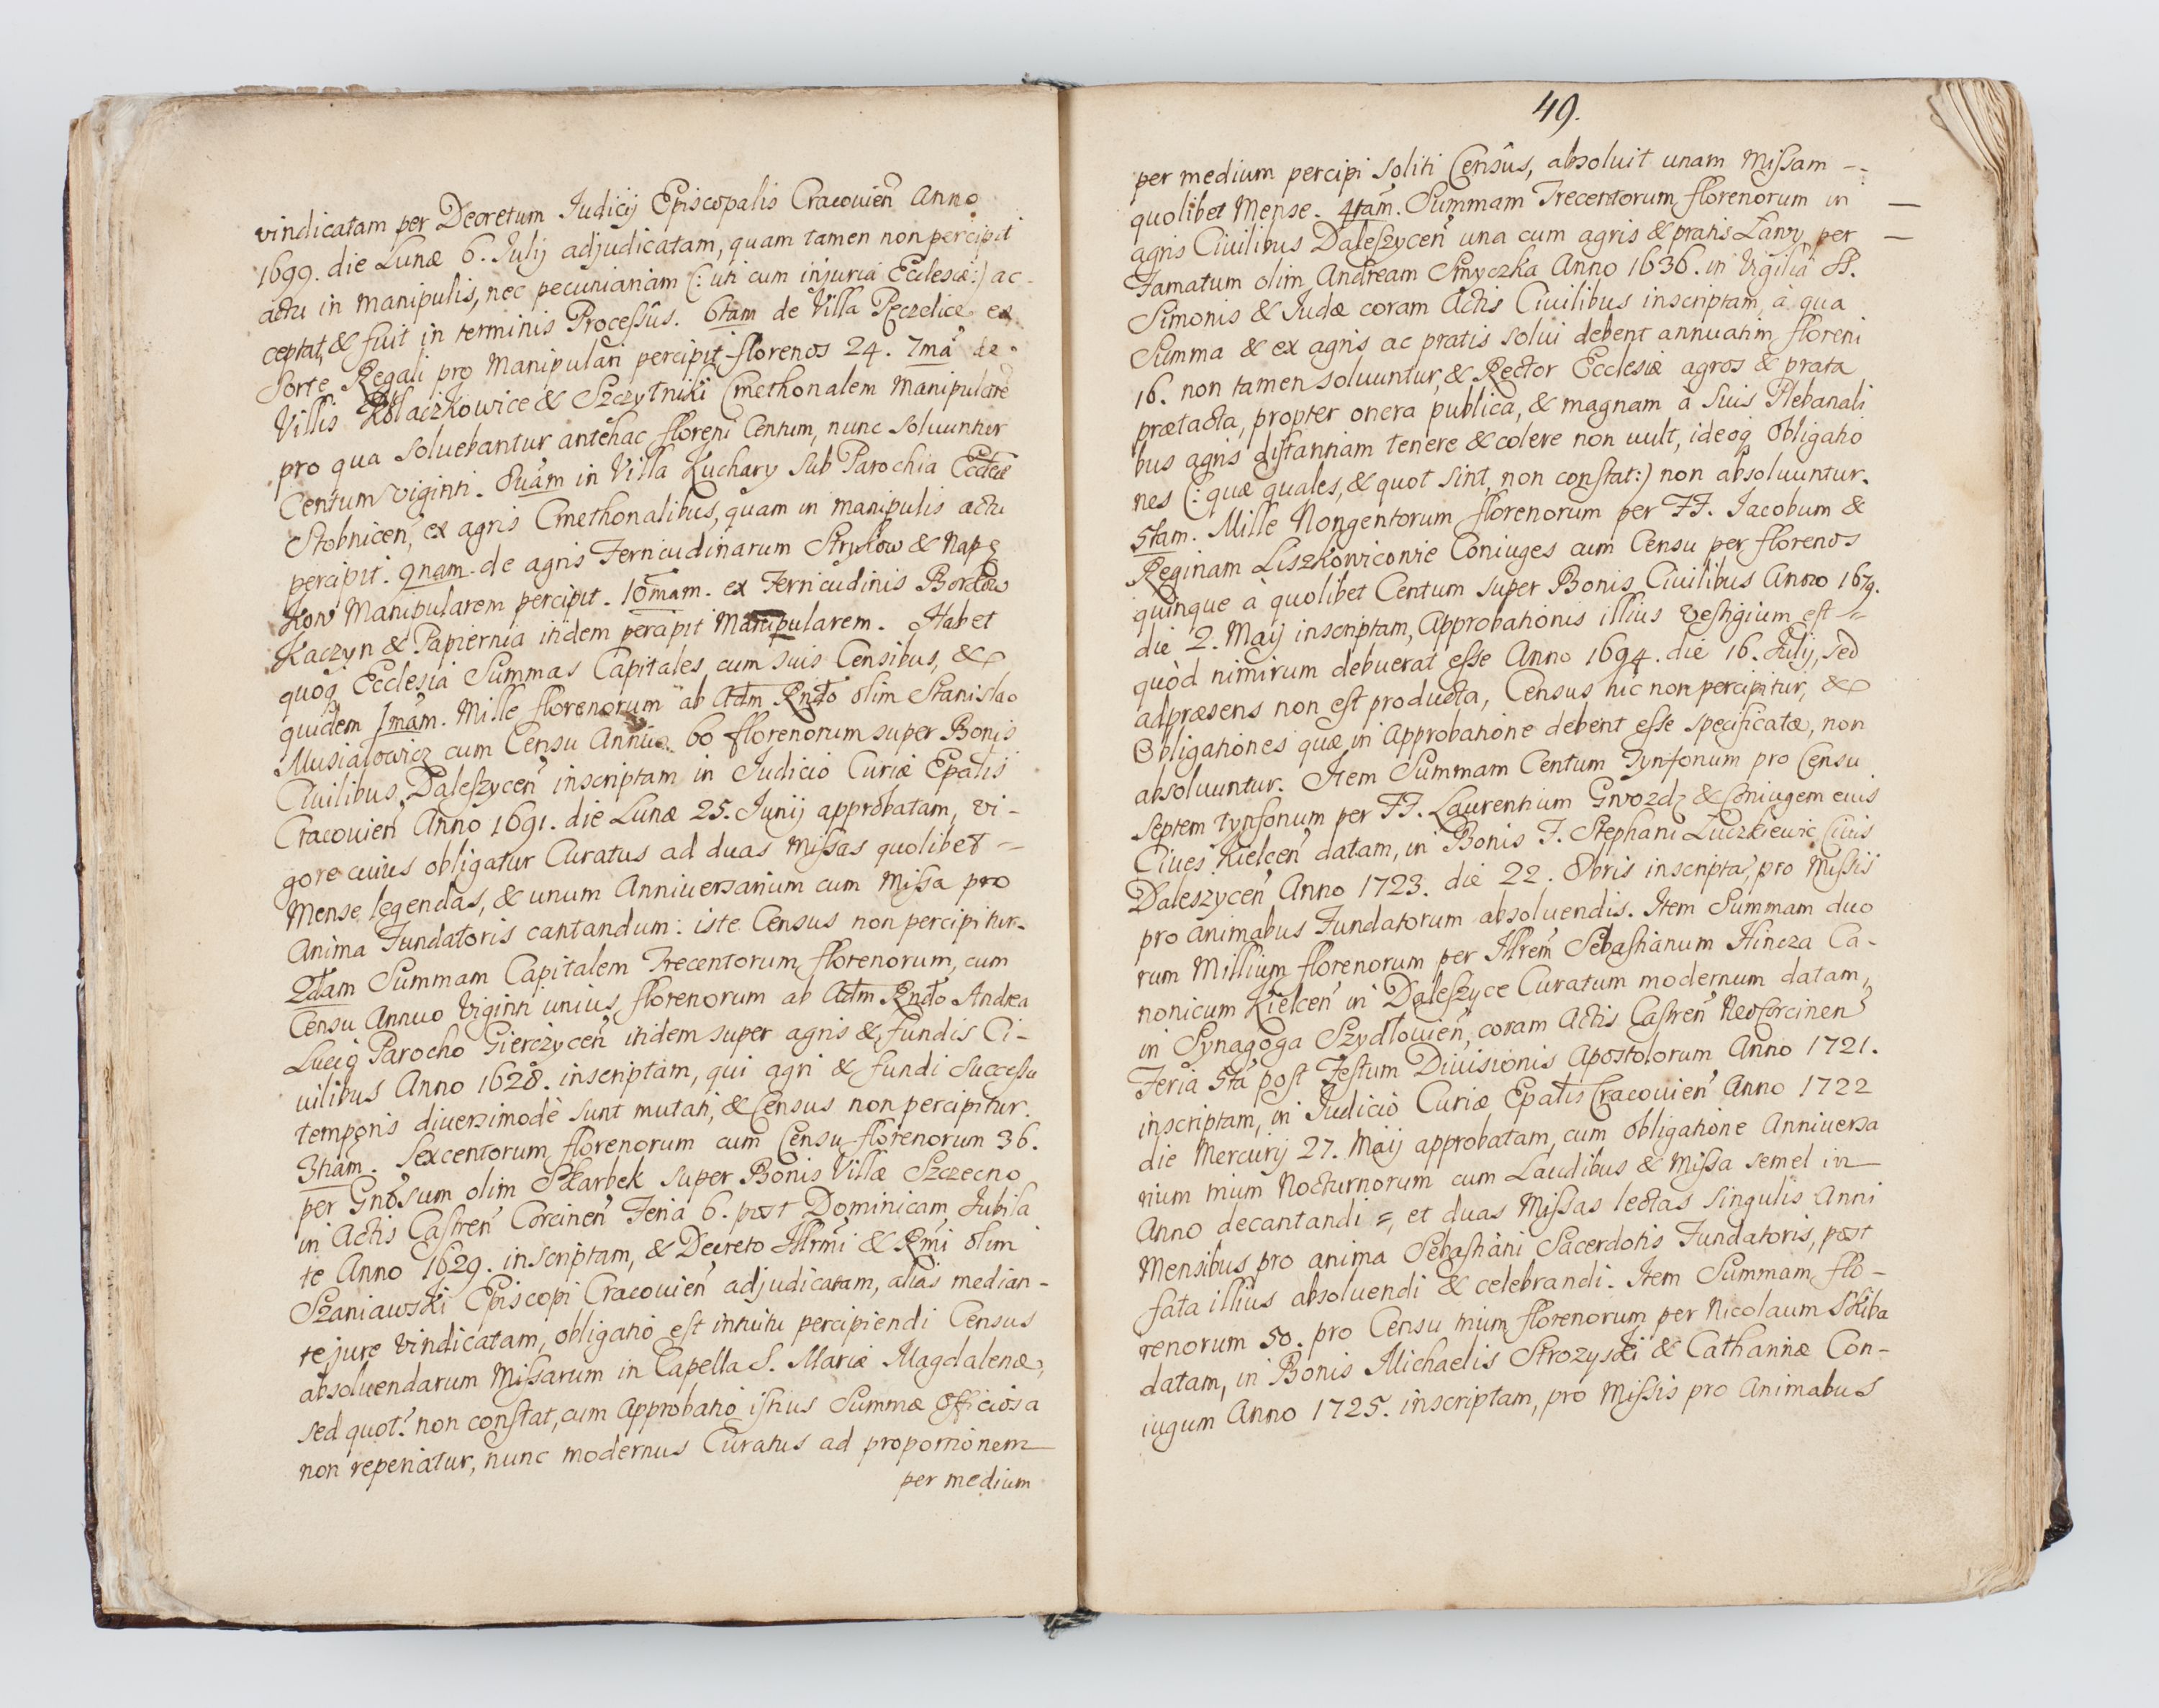 vindicatam per Decretum Judicij Episcopalis Cracouien̄ Anno
1699. die Lunæ 6. Julij adjudicatam, quam tamen non percipit
actu in manipulis, nec pecuniariam (: uti cum injuria Ecclesiæ:) ac-
ceptat, & fuit in terminis Processûs. 6tam de Villa Peczelice ex
Sorte Regali pro Manipulari percipit florenos 24. 7mā de
Villis Kołaczkowice & Szczytniki Cmethonalem Manipularē
pro qua soluebantur antehac floreni Centum, nunc soluuntur
Centum viginti. 8uam in Villa Kuchary sub Parochia Ecclæ
Stobnicen̄, ex agris Cmethonalibus, quam in manipulis actu
percipit. 9nam de agris Fernicudinarum Strykow & Nap
kow Manipularem percipit. 10mam. ex Fernicudinis Borków
Kaczyn & Papiernia itidem percipit Manipularem. Habet
quoq Ecclesia Summas Capitales cum suis Censibus, &
quidem 1mam. Mille florenorum ab Adm Rndo olim Stanislao
Musiałowicz cum Censu Annuo 60 florenorum super Bonis
Ciuilibus Daleszycen̄ inscriptam in Judicio Curiæ Epalis
Cracouien̄ Anno 1691. die Lunæ 25. Junij approbatam, vi-
gore cuius obligatur Curatus ad duas Missas quolibet =
Mense legendas, & unum Anniuersarium cum Missa pro
Anima Fundatoris cantandum: iste Census non percipitur.
2dam Summam Capitalem Trecentorum florenorum, cum
Censu Annuo Viginti unius florenorum ab Adm Rndo Andrea
Lucig Parocho Gierczycen̄ itidem super agris & fundis Ci-
uilibus Anno 1628. inscriptam, qui agri & fundi successu
temporis diuersimodè sunt mutati, & Census non percipitur.
3tiam. Sexcentorum florenorum cum Censu florenorum 36.
per Gnosum olim Skarbek super Bonis Villæ Szczecno
in Actis Castren̄ Corcinen̄ Feria 6. post Dominicam Jubila
te Anno 1629. inscriptam, & Decreto Illrmi & Rmi olim
Szaniawski Episcopi Cracouien̄ adjudicatam, alias median-
te jure vindicatam, obligatio est intuitu percipiendi Census
absoluendarum Missarum in Capella S. Mariæ Magdalenæ,
sed quot? non constat, cum Approbatio istius Summæ officiosa
non reperiatur, nunc modernus Curatus ad proportionem
per medium
49.
per medium percipi soliti Censûs, absoluit unam Missam -
quolibet Mense. 4tam. Summam Trecentorum florenorum in —
agris Ciuilibus Daleszycen̄ una cum agris & pratis Lawy per —
Famatum olim Andream Smyczka Anno 1636. in Vigilia SS.
Simonis & Judæ coram Actis Ciuilibus inscriptam, à qua
Summa & ex agris ac pratis solui debent annuatim floreni
16. non tamen soluuntur, & Rector Ecclesiæ agros & prata
prætacta, propter onera publica, & magnam à suis Plebanali
bus agris distantiam tenere & colere non uult, ideoq Obligatio
nes (: quæ quales, & quot sint, non constat:) non absoluuntur.
5tam. Mille Nongentorum florenorum per FF. Jacobum &
Reginam Liszkowicowie Coniuges cum Censu per florenos
quinque à quolibet Centum super Bonis Ciuilibus Anno 1679.
die 2. Maij inscriptam, Approbationis illius vestigium est =
quòd nimirum debuerat esse Anno 1694. die 16. Julij, sed
adpræsens non est producta, Census hic non percipitur, &
Obligationes quæ in Approbatione debent esse specificatæ, non
absoluuntur. Item Summam Centum Tynfonum pro Censu
septem tynfonum per FF. Laurentium Gwozdz & Coniugem eius
Ciues Kielcen̄ datam, in Bonis F. Stephani Łuczkiewic Ciuis
Daleszycen̄ Anno 1723. die 22. 8bris inscripta, pro Missis
pro animabus Fundatorum absoluendis. Item Summam duo
rum Millium florenorum per Illrem̄ Sebastianum Hincza Ca-
nonicum Kielcen̄ in Daleszyce Curatum modernum datam,
in Synagoga Szydłouien̄, coram Actis Castren̄ NeoCorcinen̄
Feria 5ta post Festum Diuisionis Apostolorum Anno 1721.
inscriptam, in Judicio Curiæ Epalis Cracouien̄ Anno 1722
die Mercurij 27. Maij approbatam, cum obligatione Anniuersa
rium trium Nocturnorum cum Laudibus & Missa semel in
Anno decantandi =, et duas Missas lectas singulis Anni
Mensibus pro anima Sebastiani Sacerdotis Fundatoris, post
fata illius absoluendi & celebrandi. Item Summam flo-
renorum 50. pro Censu trium florenorum per Nicolaum Skiba
datam, in Bonis Michaelis Strozyski & Catharinæ Con-
iugum Anno 1725. inscriptam, pro Missis pro Animabus